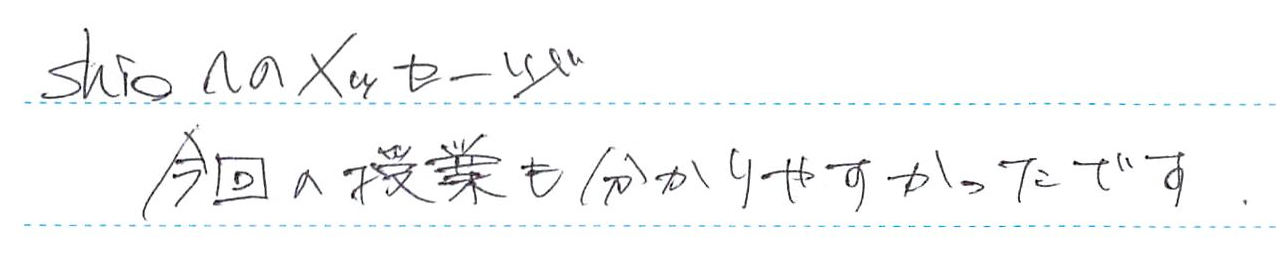 shioへのメッセージ
今回の授業も分かりやすかったです.